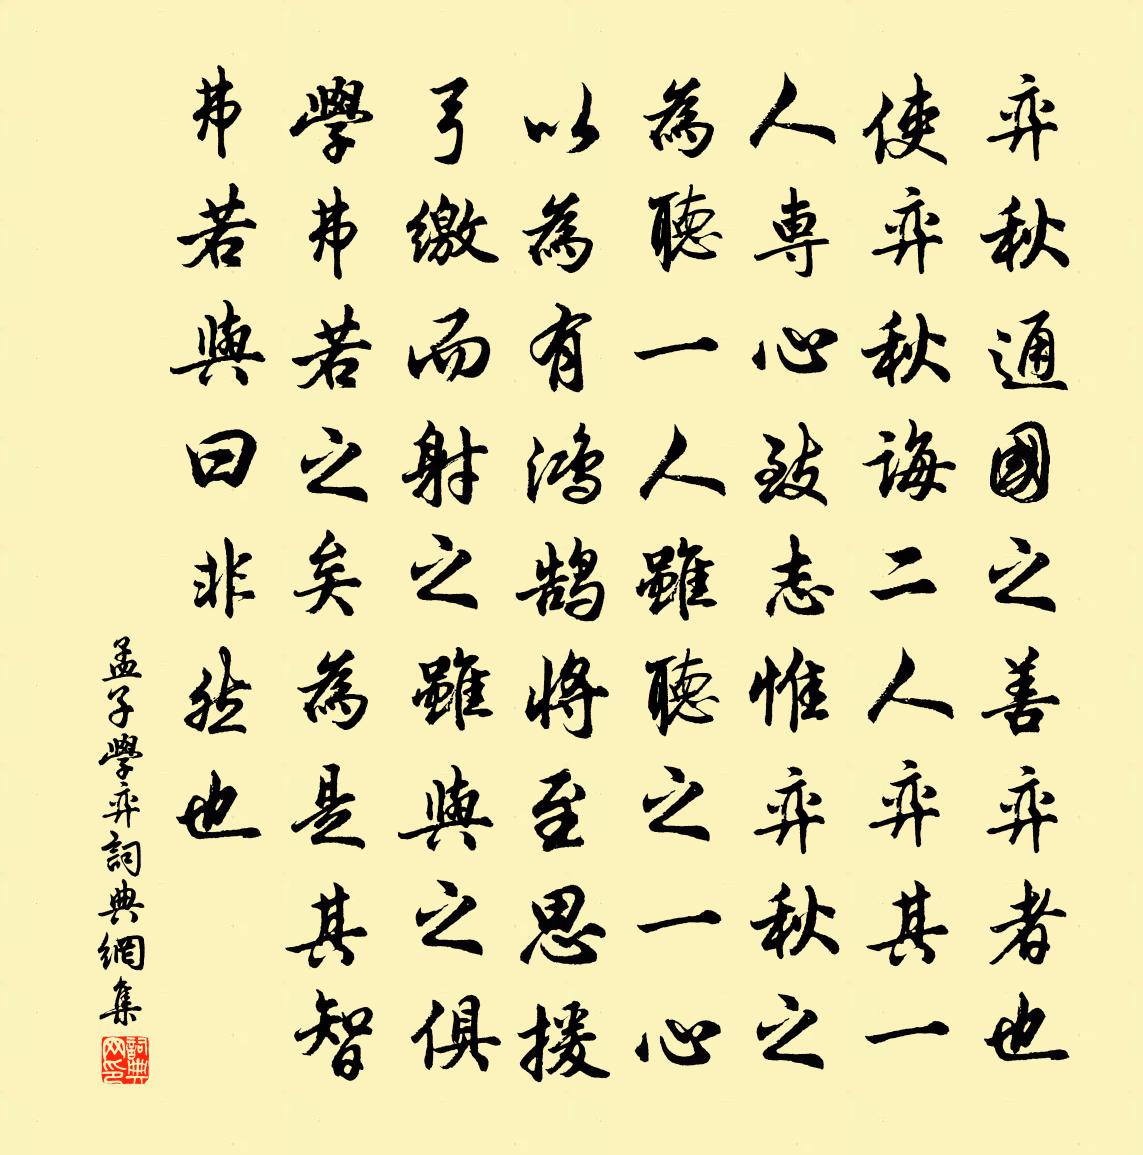 弈秋通國之善弈者也
使弈秋誨二人弈其一
人專心致志惟弈秋之
為聽一人雖聽之一心
以為有鴻鵠將至思援
弓繳而射之雖與之俱
學弗若之矣為是其智
弗若與曰非然也
孟子學弈詞典網集
詞典網印